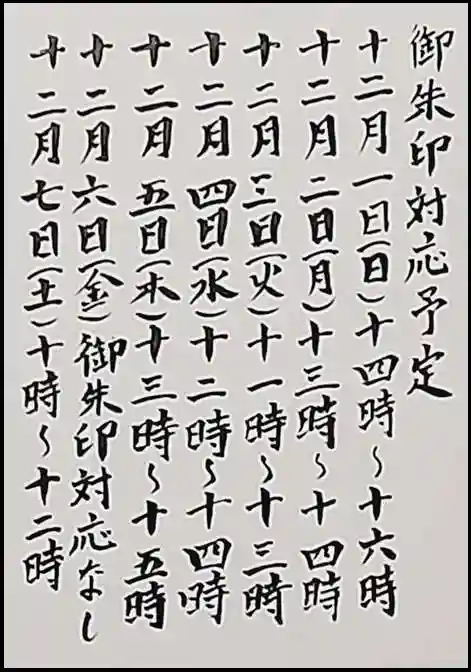 御朱印対応予定
十二月一日(日)十四時～十六時
十二月二日(月)十三時～十四時
十二月三日(火)十一時～十三時
十二月四日(水)十二時～十四時
十二月五日(木)十三時～十五時
十二月六日(金)御朱印対応なし
十二月七日(土)十時～十二時